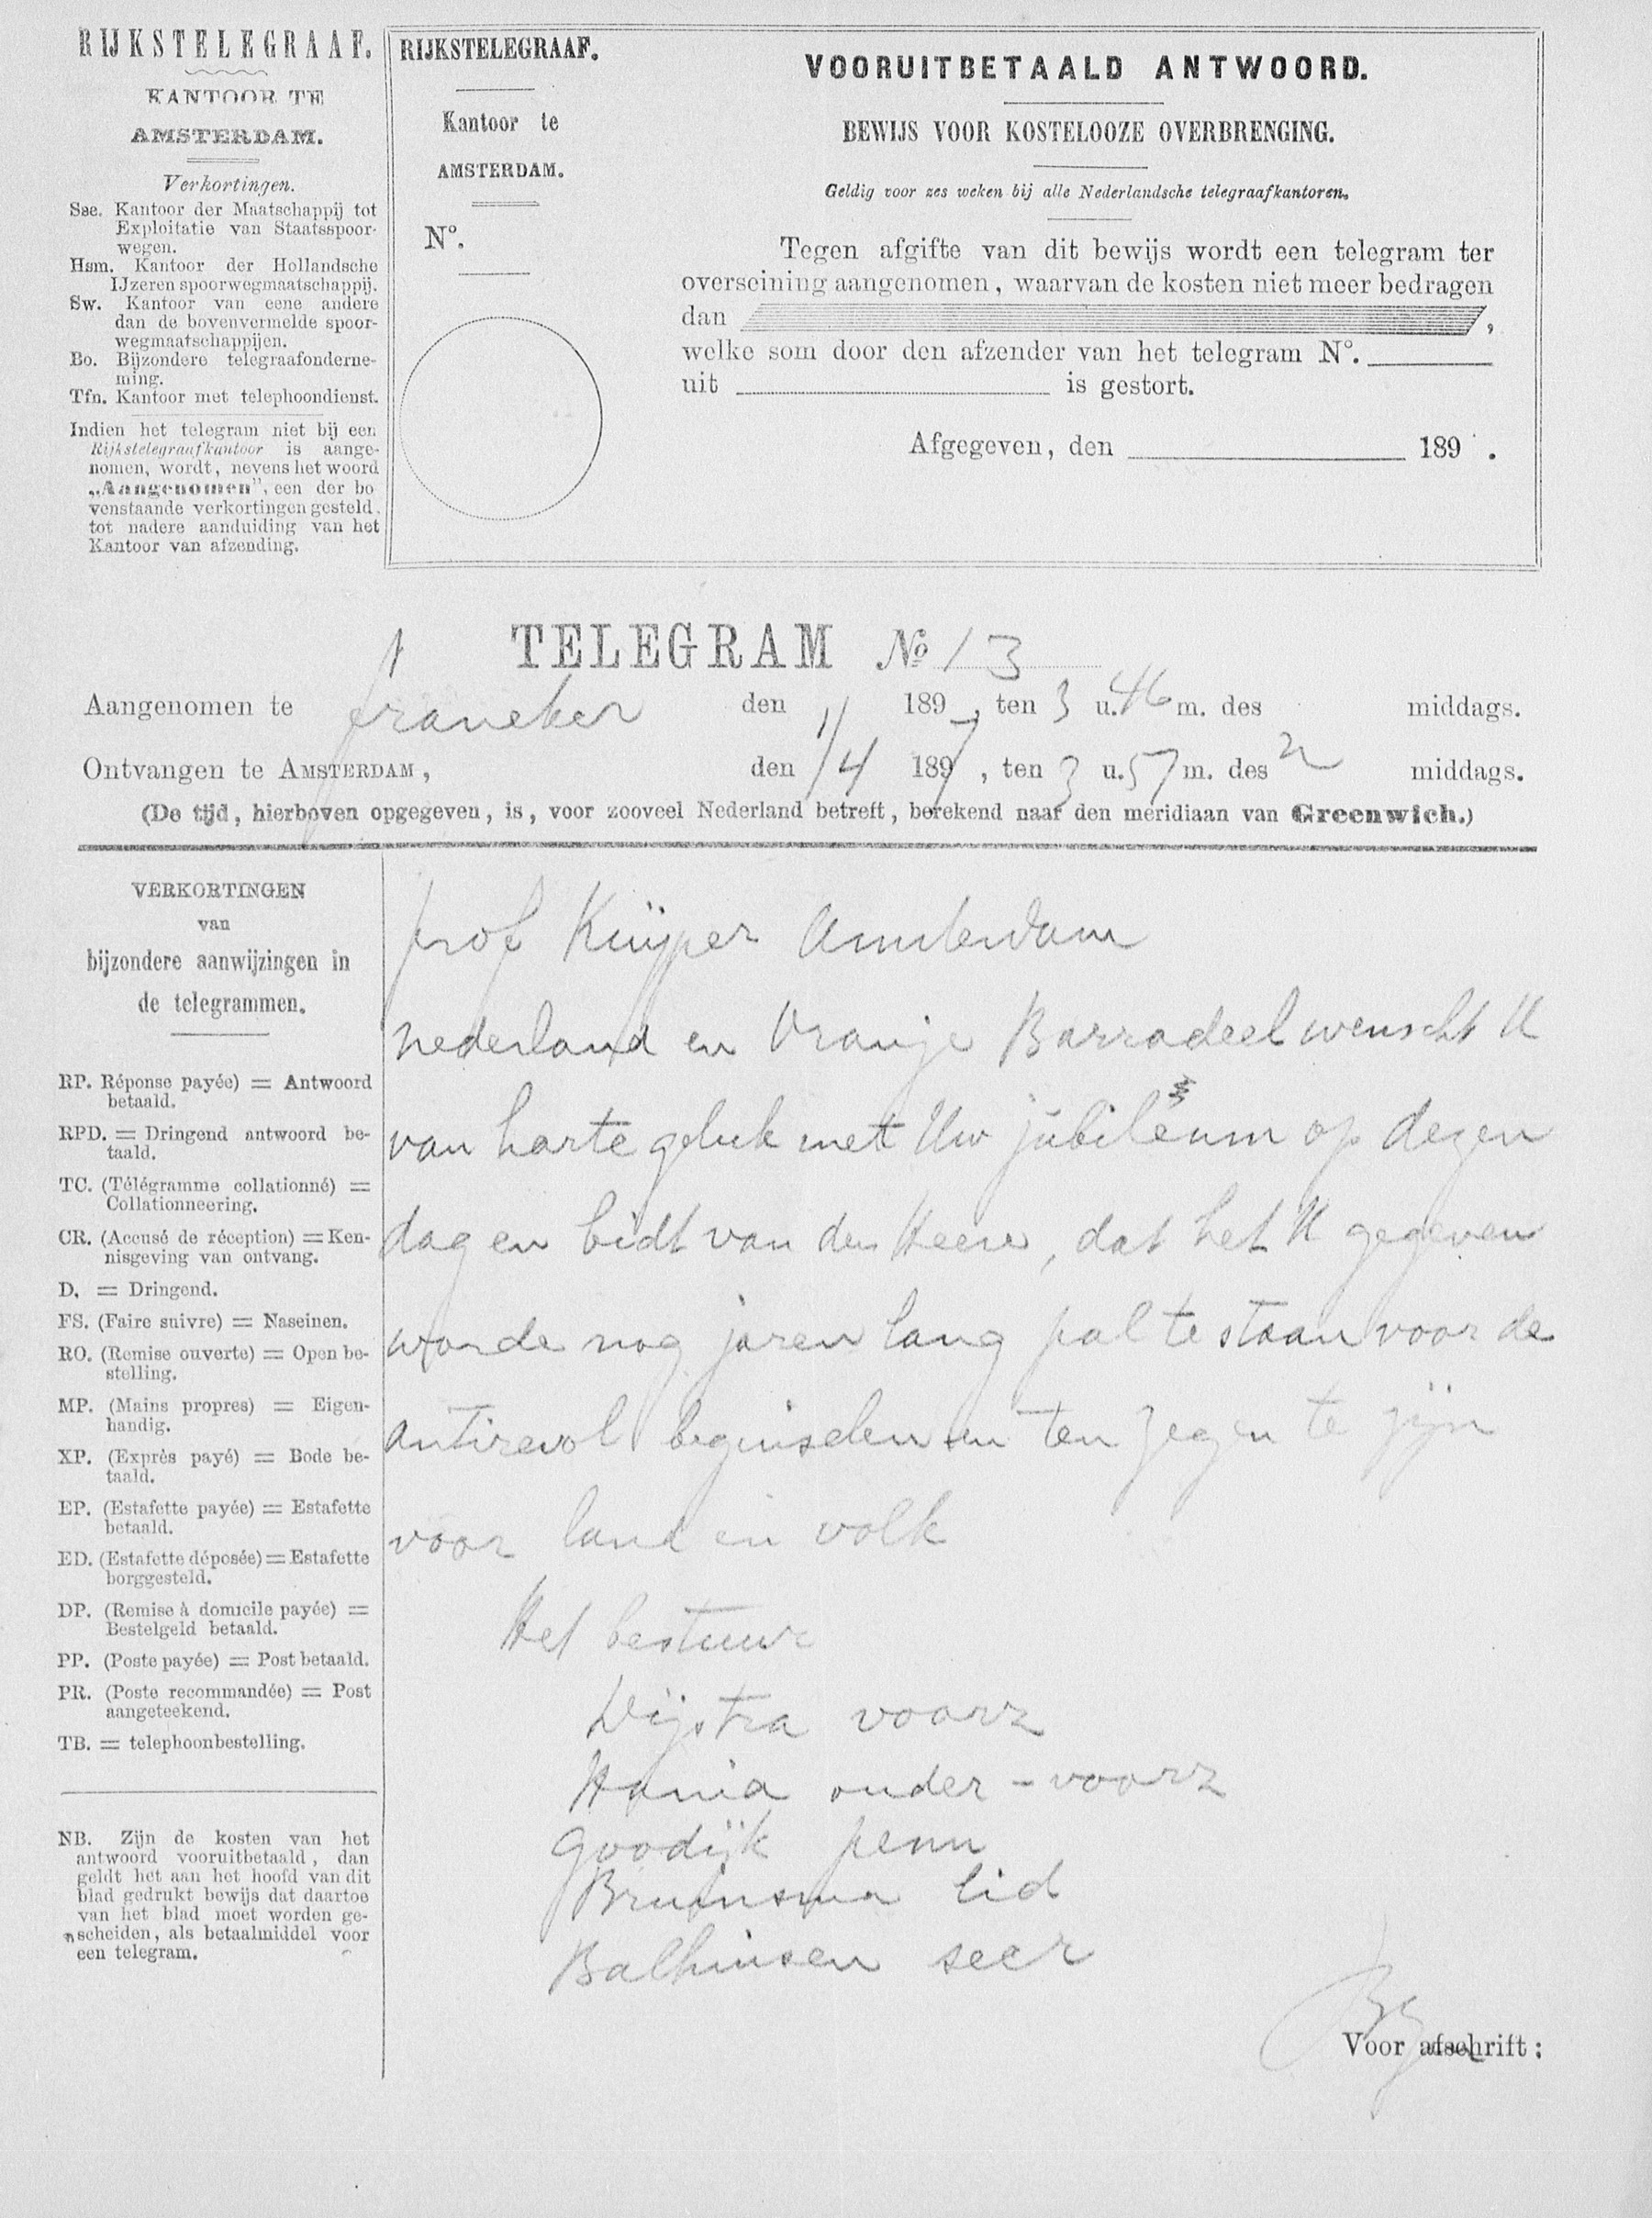 RIJKSTELEGRAAF.
KANTOOR TE
AMSTERDAM.
Verkortingen.
Sse. Kantoor der Maatschappij tot
Exploitatie van Staatsspoor-
wegen.
Hsm. Kantoor der Hollandsche
IJzeren spoorwegmaatschappij.
Sw. Kantoor van eene andere
dan de bovenvermelde spoor-
wegmaatschappijen.
Bo. Bijzondere telegraafonderne-
ming.
Tfn. Kantoor met telephoondienst.
Indien het telegram niet bij een
Rijkstelegraafkantoor is aange-
nomen, wordt, nevens het woord
„Aangenomen”, een der bo
venstaande verkortingen gesteld,
tot nadere aanduiding van het
Kantoor van afzending.
RIJKSTELEGRAAF.
Kantoor te
AMSTERDAM.
No.
VOORUITBETAALD ANTWOORD.
BEWIJS VOOR KOSTELOOZE OVERBRENGING.
Geldig voor zes weken bij alle Nederlandsche telegraafkantoren.
Tegen afgifte van dit bewijs wordt een telegram ter
overseining aangenomen, waarvan de kosten niet meer bedragen
dan ,
welke som door den afzender van het telegram No.
uit is gestort.
Afgegeven, den 189 .
TELEGRAM No 13
Aangenomen te franeker den 1/ 1897, ten 3 u. 46 m. des middags.
Ontvangen te AMSTERDAM, den 1/4 1897, ten 3 u. 57 m. des n middags.
(De tijd, hierboven opgegeven, is, voor zooveel Nederland betreft, berekend naar den meridiaan van Greenwich.)
VERKORTINGEN
van
bijzondere aanwijzingen in
de telegrammen.
RP. Réponse payée) = Antwoord
betaald.
RPD. = Dringend antwoord be-
taald.
TC. (Télégramme collationné) =
Collationneering.
CR. (Accusé de réception) = Ken-
nisgeving van ontvang.
D. = Dringend.
FS. (Faire suivre) = Naseinen.
RO. (Remise ouverte) = Open be-
stelling.
MP. (Mains propres) = Eigen-
handig.
XP. (Exprès payé) = Bode be-
taald.
EP. (Estafette payée) = Estafette
betaald.
ED. (Estafette déposée) = Estafette
borggesteld.
DP. (Remise à domicile payée) =
Bestelgeld betaald.
PP. (Poste payée) = Post betaald.
PR. (Poste recommandée) = Post
aangeteekend.
TB. = telephoonbestelling.
NB. Zijn de kosten van het
antwoord vooruitbetaald, dan
geldt het aan het hoofd van dit
blad gedrukt bewijs dat daartoe
van het blad moet worden ge-
scheiden, als betaalmiddel voor
een telegram.
prof Kuijper Amsterdam
nederland en Oranje Barradeel wenscht U
van harte geluk met Uw jubileum op dezen
dag en bidt van den Heere, dat het U gegeven
worde nog jaren lang pal te staan voor de
antirevol beginselen en ten zegen te zijn
voor land en volk
Het bestuur
Dijstra voorz
Hania onder-voorz
Goodijk penn
Bruinsma lid
secr
Voor afschrift: